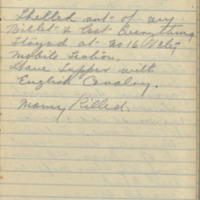 Shelled out of my
Billet & lost Everything
Stayed at No 16 Vety
Mobile Section.
Have Supper with
English Cavalry.
Many Killed.